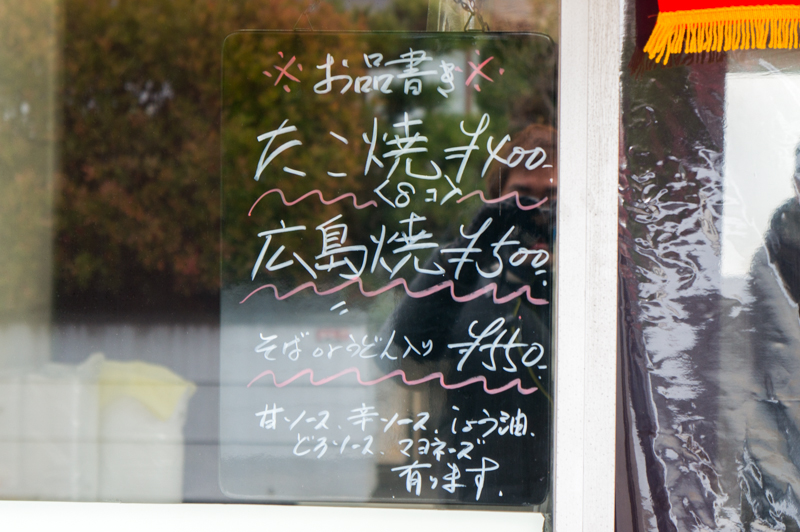 ※ お品書き ※
たこ焼 ¥400.
〈8コ〉
広島焼 ¥500.
〃
そば or うどん入り ¥550.
甘ソース、辛ソース、しょう油、
どろソース、マヨネーズ
有ります。